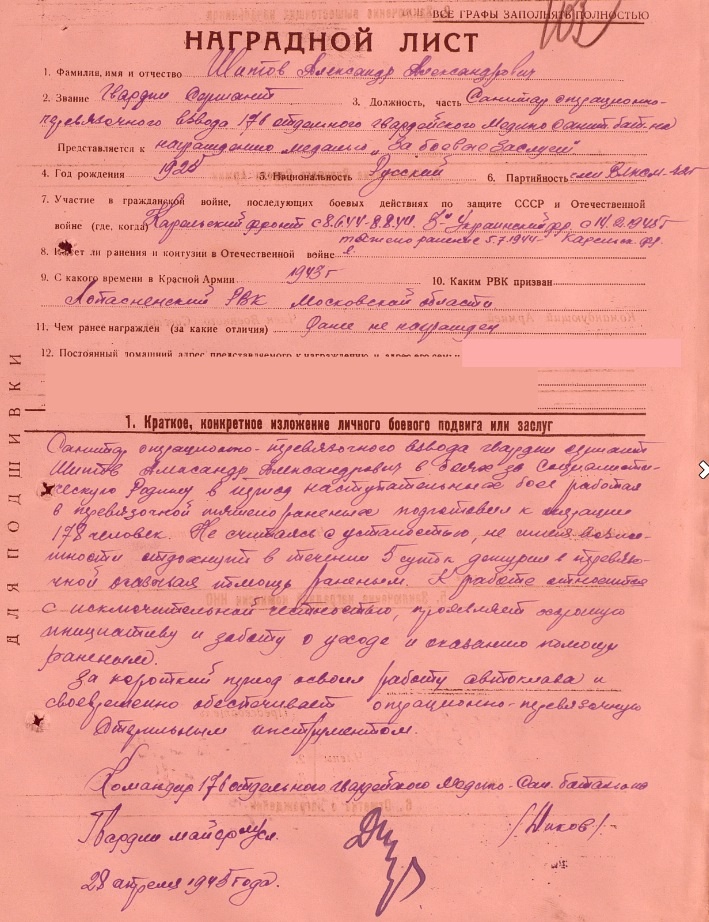 ВСЕ ГРАФЫ ЗАПОЛНЯТЬ ПОЛНОСТЬЮ
НАГРАДНОЙ ЛИСТ
1. Фамилия, имя и отчество Шитов Александр Александрович
2. Звание Гвардии Сержант 3. Должность, часть Санитар операционно-
перевязочного взвода 176 отдельного гвардейского Медико Санит бат-на
Представляется к награждению медалью „За боевые заслуги"
4. Год рождения 1925 5. Национальность Русский 6. Партийность член ВЛКСМ-
7. Участие в гражданской войне, последующих боевых действиях по защите СССР и Отечественной
войне (где, когда) Карельский фронт с 8.6.44-8.8.44. 3й Украинский фр. с 14.2.1945г
тяжело ранение 5.7.1944- Карельск фр.
8. Имеет ли ранения и контузии в Отечественной войне
9. С какого времени в Красной Армии 1943г 10. Каким РВК призван
Лопасненский РВК Московской области
11. Чем ранее награжден (за какие отличия) Ранее не награжден
12. Постоянный домашний адрес представляемого к награждению и адрес его семьи
ДЛЯ ПОДШИВКИ
1. Краткое, конкретное изложение личного боевого подвига или заслуг
Санитар операционно-перевязочного взвода гвардии сержант
Шитов Александр Александрович в боях за Социалисти-
ческую Родину в период наступательных боев работая
в перевязочной тяжелораненых подготовил к операции
178 человек. Не считаясь с усталостью, не имея возмо-
жности отдохнуть в течении 5 суток дежурил в перевязо-
чной оказывая помощь раненым. К работе относится
с исключительной честностью, проявляет хорошую
инициативу и заботу о уходе и оказанию помощи
раненым.
За короткий период освоил работу автоклава и
своевременно обеспечивает операционно-перевязочную
стерильным инструментом.
Командир 176 отдельного гвардейского Медико-Сан. батальона
Гвардии майор м/сл. /Диков/-
28 апреля 1945 года.